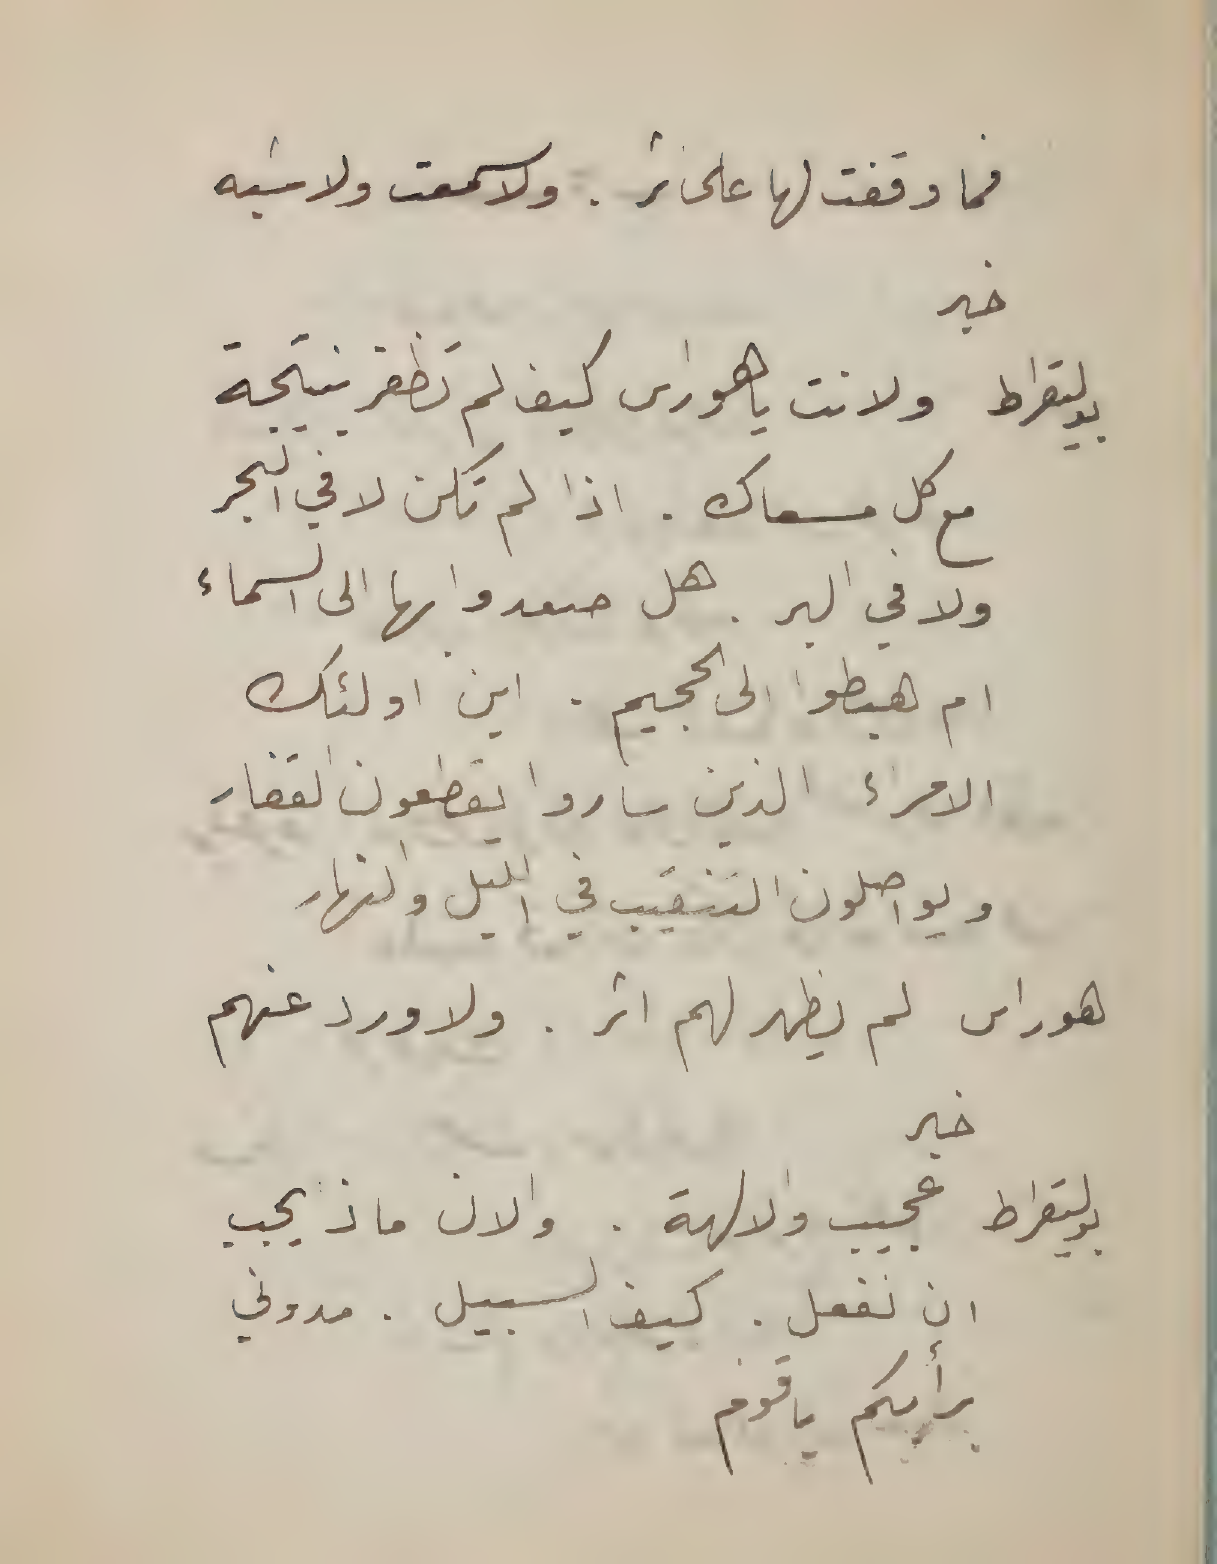 فما وقفت لها على اثر . ولا سمعت ولا شبه
خبر
بوليقراط ولا انت يا هوراس كيف لم تظفر بنتيجة
مع كل مسعاك . اذا لم تكن لا في البحر
ولا في البر . هل صعدوا بها الى السماء
ام هبطوا الى الجحيم . اين اولئك
الامراء الذين ساروا يقطعون القفار
ويواصلون التنقيب في الليل والنهار
هوراس لم يظهر لهم اثر . ولا ورد عنهم
خبر
بوليقراط عجيب والالهة . والان ماذا يجب
ان نفعل . كيف السبيل . مدوني
برأيكم يا قوم